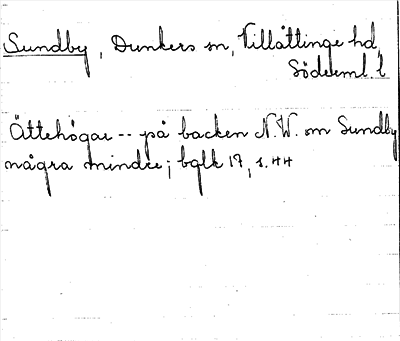 Sundby, Dunkers sn, Villåttinge hd,
Söderml. l.
Ättehögar -- på backen N.W. om Sundby
några mindre; bglk 17, s. 44